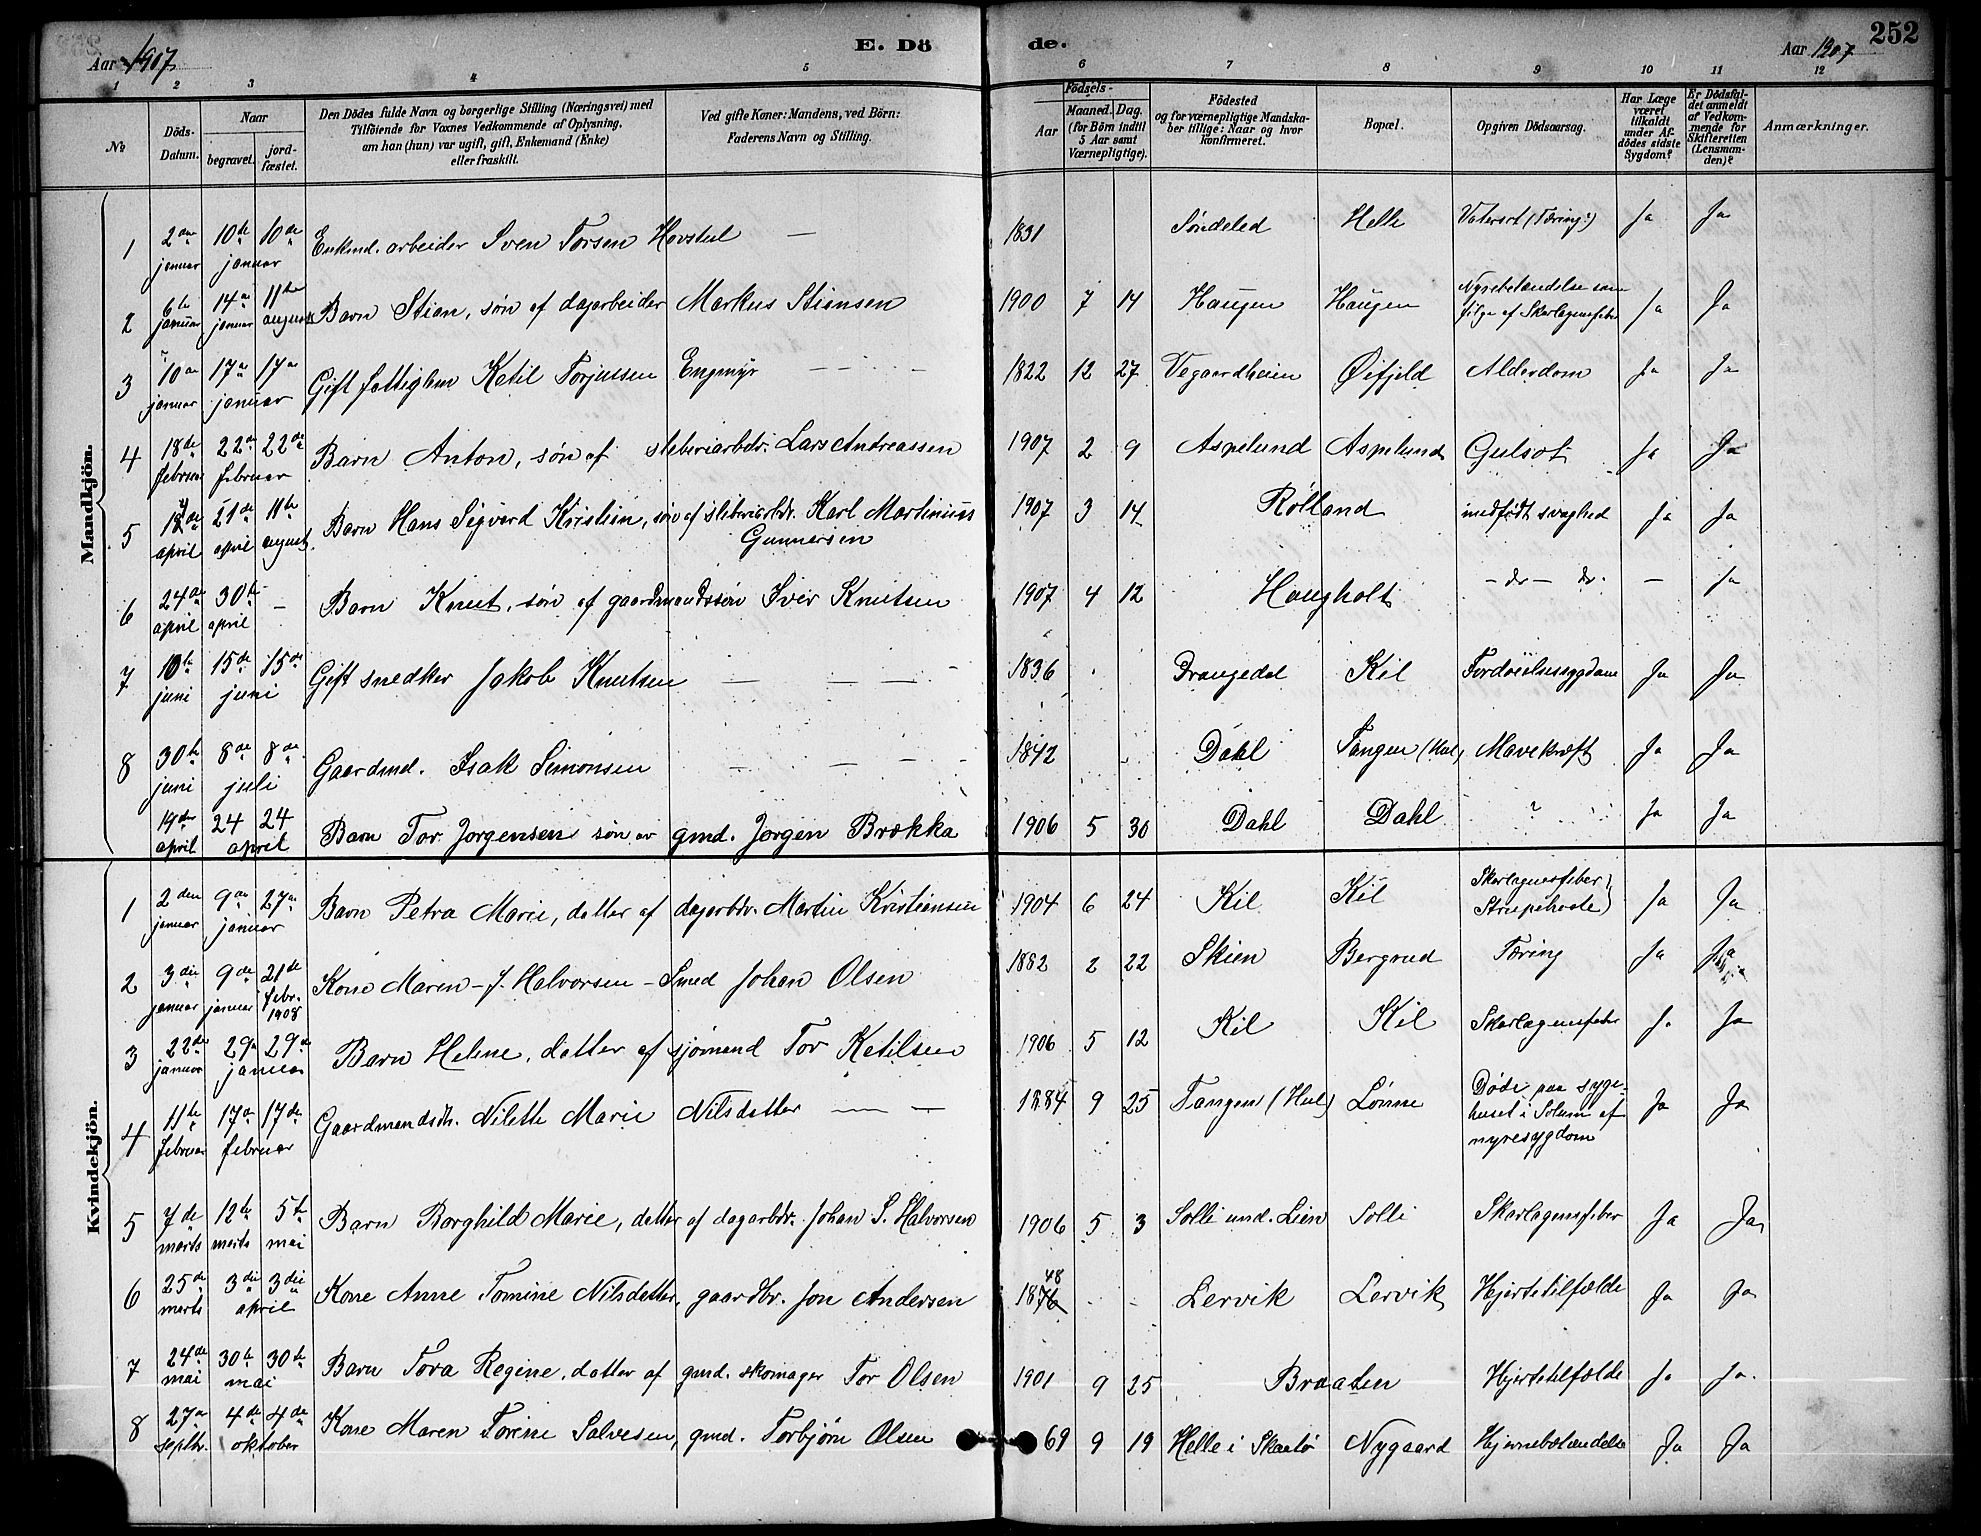 Aar 1907
E. Dö
de.
Aar 1907
252
1 2 3 4 5 6 7 8 9 10 11 12
№
Döds-Datum.
Naar
begravet.
jord-fæstet.
Den Dödes fulde Navn og borgerlige Stilling (Næringsvei) med
Tilföiende for Voxnes Vedkommende af Oplysning,
om han (hun) var ugift, gift, Enkemand (Enke)
eller fraskilt.
Ved gifte Koner: Mandens, ved Börn:
Faderens Navn og Stilling.
Födsels-
Aar
Maaned. Dag.
(for Börn indtil
5 Aar samt
Værnepligtige).
Födested
og for værnepligtige Mandska-
ber tillige: Naar og hvor
konfirmeret.
Bopæl.
Opgiven Dödsaarsag.
Har Læge
været
tilkaldt
under Af-
dödes sidste
Sygdom?
Er Dödsfal-
det anmeldt
af Vedkom-
mende for
Skifteretten
(Lensman-
den)?
Anmærkninger.
Mandkjön.
1 2den januar 10de 10de januar Enkmd. arbeider Sven Torsen Hovstul — 1831 Søndeled Helle Vatersot (Tæring?) Ja Ja
2 6te januar 14de januar 11te august Barn Stian, søn af dagarbeider Markus Stiansen 1900 7 14 Haugen Haugen Nyrebetændelse som følge af Skarlagensfeber Ja Ja
3 10de januar 17de 17de januar Gift fattiglem Ketil Torjussen Engmyr 1822 12 27 Vegaardheien Øifjeld Alderdom Ja Ja
4 18de februar 22de 22de februar Barn Anton, søn af sliberiarbdr. Lars Andreassen 1907 2 9 Aspelund Aspelund Gulsot Ja Ja
5 april 21de april 11te august Barn Hans Sigvard Kristian, søn af sliberiarbdr. Karl Martinius Gunnarsen 1907 3 14 Rølland medfødt svaghed Ja Ja
6 24de april 30te april — Barn Knut, søn af gaardmandssøn Iver Knutsen 1907 4 12 Haugholt — do — do. — Ja
7 10de juni 15de 15de juni Gift snedker Jakob Knutsen — — — 1836 Drangedal Kil Fordøielsessygdom Ja Ja
8 30te juni 8de 8de juli Gaardmd. Isak Simonsen — — — 1842 Dahl Tangen (Hul) Mavekræft Ja Ja
19de april 24 24 april Barn Tor Jorgensen søn av gmd. Jorgen Brækka 1906 5 30 Dahl Dahl ? Ja Ja
Kvindekjön.
1 2den januar 9de januar 27de Barn Petra Marie, datter af dagarbdr. Martin Kristiansen 1904 6 24 Kil Kil Skarlagensfeber Strupehoste) Ja Ja
2 3die januar 9de januar 21de febr. 1908 Kone Maren J. Halvorsen — Smed Johan Olsen 1882 2 22 Skien Bergrud Tæring Ja Ja
3 22de januar 29de 29de januar Barn Helene, datter af sjømand Tor Ketilsen 1906 5 12 Kil Kil Skarlagensfeber Ja Ja
4 11te februar 17de 17de februar Gaardmandsdtr. Nilette Marie Nilsdatter — — 1884 9 25 Tangen (Hul) Lønne Døde paa syge-huset i Solum af nyresygdom Ja Ja
5 7de marts 12te marts 5te mai Barn Borghild Marie, datter af dagarbdr. Johan S. Halvorsen 1906 5 3 Solli und. Lien Solli Skarlagensfeber Ja Ja
6 25de marts 3die 3die april Kone Anne Tomine Nilsdatter, gaardbr. Jon Andersen 1876 48 Lervik Lervik Hjertetilfælde Ja Ja
7 24de mai 30te 30te mai Barn Tora Regine, datter af gmd. skomager Tor Olsen 1901 9 25 Braaten Hjertetilfælde Ja Ja.
8 27de septbr. 4de 4de oktober Kone Maren Torine Salvesen, gmd. Torbjørn Olsen 69 9 19 Helle i Skaatø Nygaard Hjernebetændelse Ja Ja